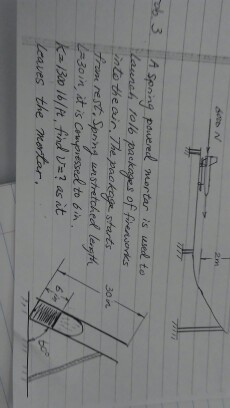 6000 N
2m
Prob 3 A Spring powered mortar is used to
launch 10 lb packages of fireworks
into the air. The package starts
from rest. Spring unstretched length
L=30in, it is compressed to 6 in.
K=1300 lb/ft, find V=? as it
leaves the mortar.
30in
6in
60°